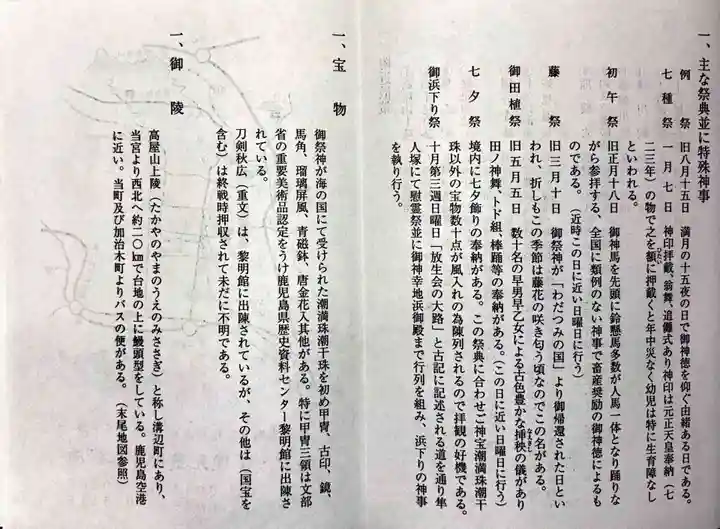 一、主な祭典並に特殊神事
例祭 旧八月十五日 満月の十五夜の日で御神徳を仰ぐ由緒ある日である。
七種祭 一月七日 神印拝戴、翁舞、追儺式あり神印は元正天皇奉納(七
二三年)の物で之を額に押戴くと年中災なく幼児は特に生育障なし
ひたい
といわれる。
初午祭 旧正月十八日 御神馬を先頭に鈴懸馬多数が人馬一体となり踊りな
がら参拝する、全国に類例のない神事で畜産奨励の御神徳によるも
のである。(近時この日に近い日曜日に行う)
藤祭 旧三月十日 御祭神が「わだつみの国」より御帰還された日とい
われ、折しもこの季節は藤花の咲き匂う頃なのでこの名がある。
御田植祭 旧五月五日 数十名の早男早乙女による古色豊かな挿秧の儀があり
田ノ神舞、トド組、棒踊等の奉納がある。(この日に近い日曜日に行う)
七夕祭 境内に七夕飾りの奉納がある。この祭典に合わせご神宝潮満珠潮干
珠以外の宝物数十点が風入れの為陳列されるので拝観の好機である。
御浜下り祭 十月第三週日曜日「放生会の大路」と古記に記述される道を通り隼
人塚にて慰霊祭並に御神幸地浜御殿まで行列を組み、浜下りの神事
を執り行う。
一、宝物
御祭神が海の国にて受けられた潮満珠潮干珠を初め甲冑、古印、鏡、
馬角、瑠璃屏風、青磁鉢、唐金花入其他がある。特に甲冑三領は文部
省の重要美術品認定をうけ鹿児島県歴史資料センター黎明館に出陳さ
れている。
刀剣秋広(重文)は、黎明館に出陳されているが、その他は(国宝を
含む)は終戦時押収されて未だに不明である。
一、御陵
高屋山上陵(たかやのやまのうえのみささぎ)と称し溝辺町にあり、
当宮より西北へ約二〇㎞で台地の上に饅頭型をしている。鹿児島空港
に近い。当町及び加治木町よりバスの便がある。(末尾地図参照)